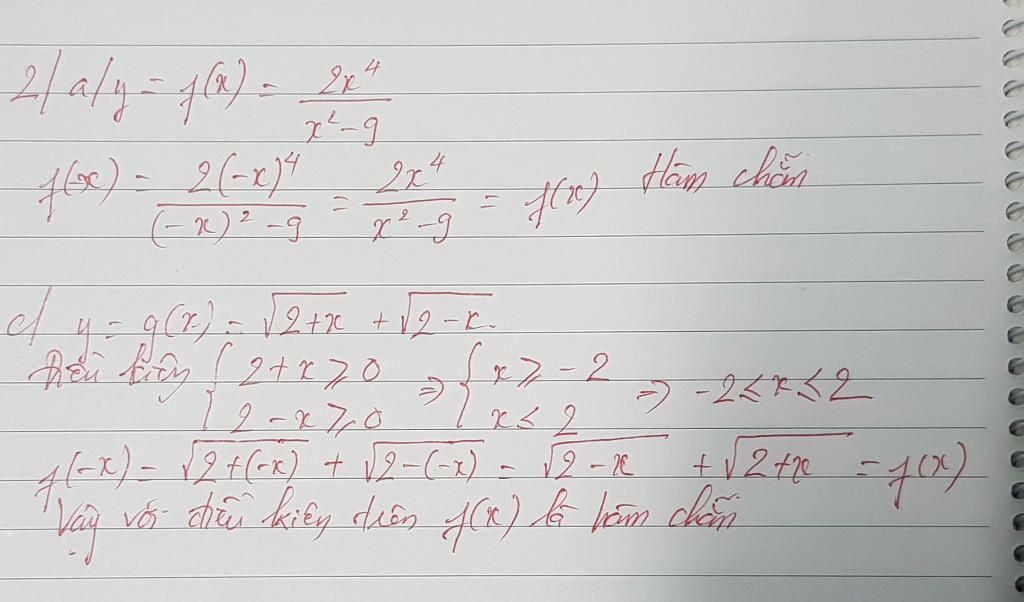 2/ a/ y = f(x) = 2x⁴/(x² - 9)
f(-x) = 2(-x)⁴/((-x)² - 9) = 2x⁴/(x² - 9) = f(x) Hàm chẵn
c/ y = g(x) = √(2+x) + √(2-x).
Điều kiện { 2+x ≥ 0 ⇒ { x ≥ -2 ⇒ -2 ≤ x ≤ 2
{ 2-x ≥ 0 { x ≤ 2
f(-x) = √(2+(-x)) + √(2-(-x)) = √(2-x) + √(2+x) = f(x)
Vậy với điều kiện trên f(x) là hàm chẵn